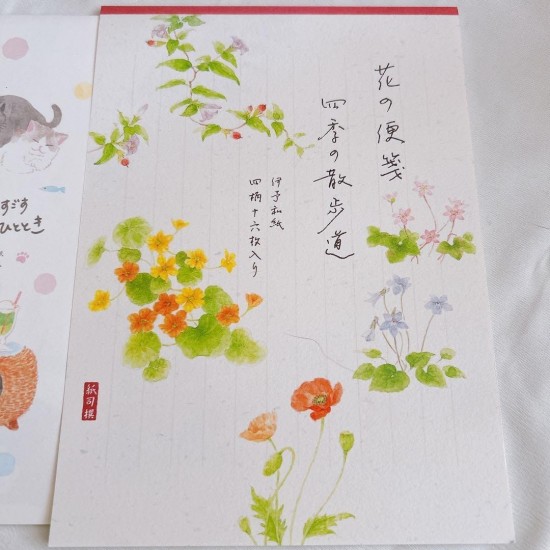 花の便箋
四季の散歩道
伊予和紙
四柄十六枚入り
紙司撰
すごす
ひととき